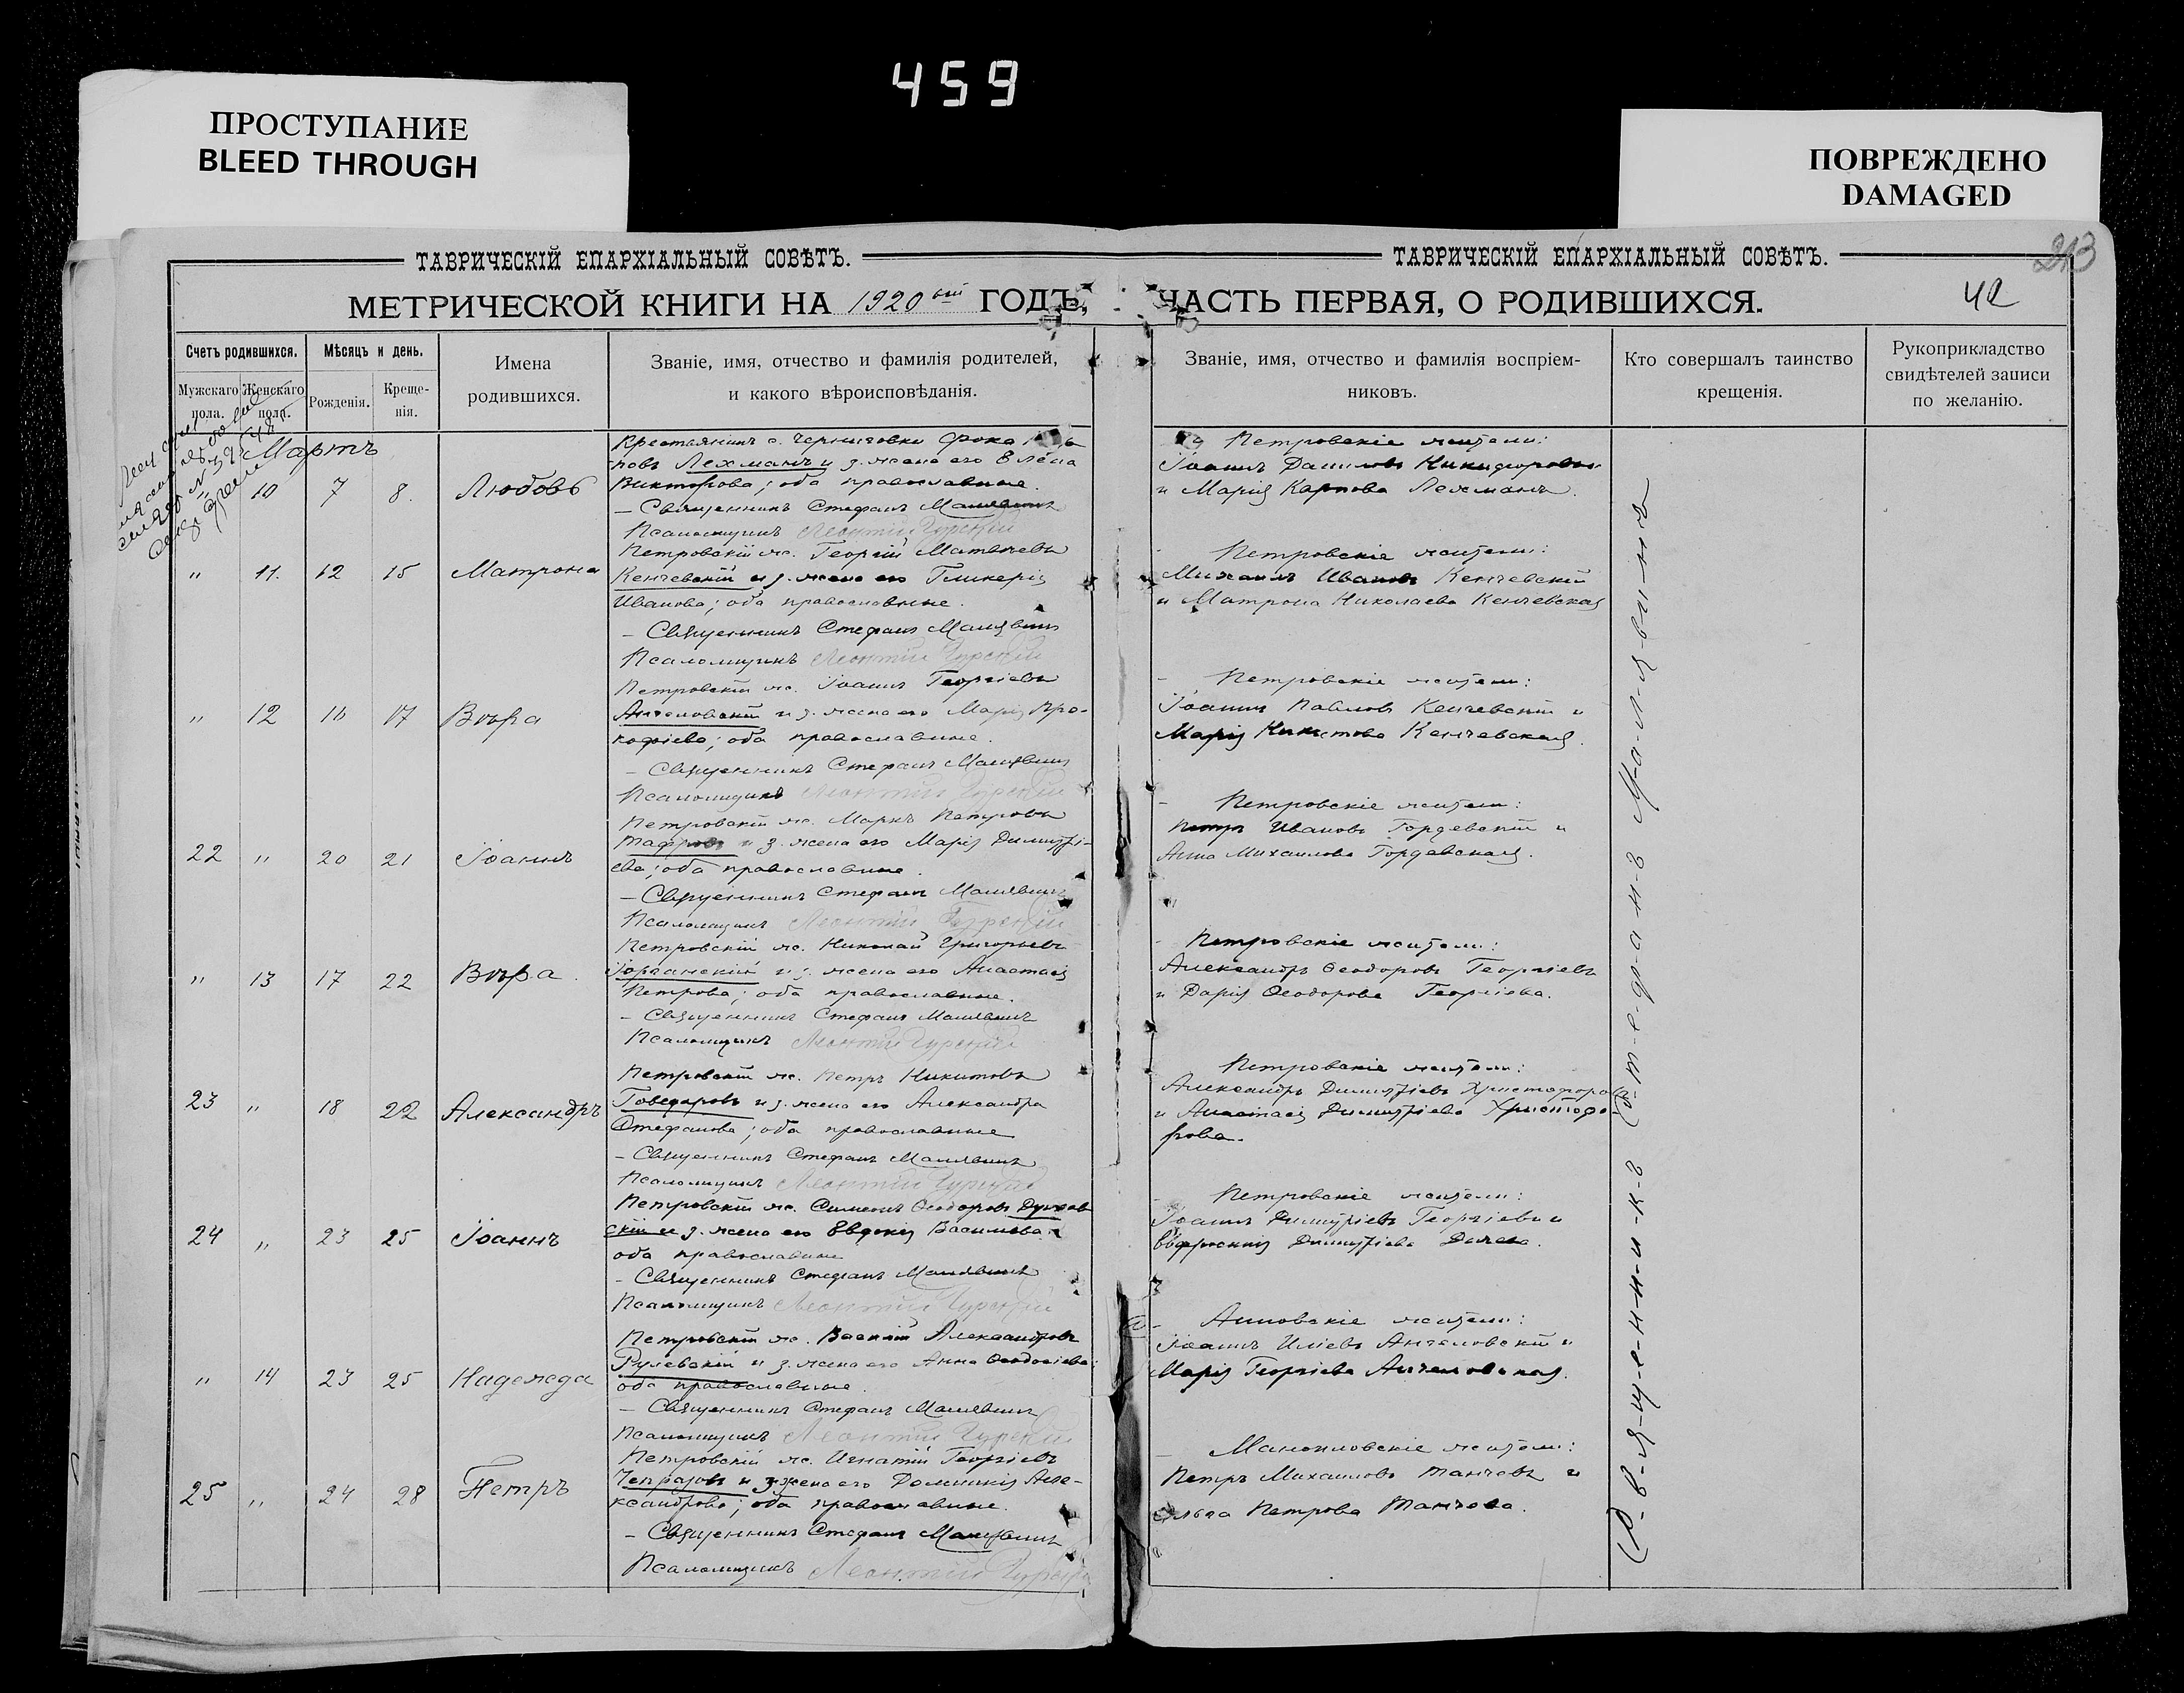 459
ПРОСТУПАНИЕ
BLEED THROUGH
ПОВРЕЖДЕНО
DAMAGED
ТАВРИЧЕСКІЙ ЕПАРХІАЛЬНЫЙ СОВѢТЪ.
ТАВРИЧЕСКІЙ ЕПАРХІАЛЬНЫЙ СОВѢТЪ.
213
МЕТРИЧЕСКОЙ КНИГИ НА 1920ый ГОДЪ,
ЧАСТЬ ПЕРВАЯ, О РОДИВШИХСЯ.
42
Счетъ родившихся.
Мужскаго пола.
Женскаго пола.
Мѣсяцъ и день.
Рожденія.
Креще-
нія.
Имена
родившихся.
Званіе, имя, отчество и фамилія родителей,
и какого вѣроисповѣданія.
Званіе, имя, отчество и фамилія воспріем-
никовъ.
Кто совершалъ таинство
крещенія.
Рукоприкладство
свидѣтелей записи
по желанію.
Мартъ
" 10 7 8. Любовь
Крестьянинъ с. Черниговки Фока
повъ Лехманъ и з. жена его Елена
Викторова; оба православные.
— Священникъ Стефанъ Малявинъ
Псаломщикъ Леонтій Гурскій
Петровскіе жители:
Іоаннъ Даниловъ Никифоровъ
и Марія Карпова Лехманъ.
" 11. 12 15 Матрона
Петровскій ж. Георгій Матвѣевъ
Кенчевскій и з. жена его Гликерія
Иванова; оба православные.
— Священникъ Стефанъ Малявинъ
Псаломщикъ Леонтій Гурскій
Петровскіе жители:
Михаилъ Ивановъ Кенчевскій
и Матрона Николаева Кенчевская
" 12 16 17 Вѣра
Петровскій ж. Іоаннъ Георгіевъ
Ангеловскій и з. жена его Марія Про-
кофіева; оба православные.
— Священникъ Стефанъ Малявинъ
Псаломщикъ Леонтій Гурскій
Петровскіе жители:
Іоаннъ Павловъ Кенчевскій и
Марія Никитова Кенчевская.
22 " 20 21 Іоаннъ
Петровскій ж. Маркъ Петровъ
и з. жена его Марія Димитрі-
ева; оба православные.
— Священникъ Стефанъ Малявинъ
Псаломщикъ Леонтій Гурскій
Петровскіе жители:
Петръ Ивановъ Гордевскій и
Анна Михаилова Гордевская.
" 13 17 22 Вѣра.
Петровскій ж. Николай Григорьевъ
и з. жена его Анастасія
Петрова; оба православные.
— Священникъ Стефанъ Малявинъ
Псаломщикъ Леонтій Гурскій
Петровскіе жители:
Александръ Ѳеодоровъ Георгіевъ
и Дарія Ѳеодорова Георгіева.
23 " 18 22 Александръ
Петровскій ж. Петръ Никитовъ
Говедаровъ и з. жена его Александра
Стефанова; оба православные
— Священникъ Стефанъ Малявинъ
Псаломщикъ Леонтій Гурскій
Петровскіе жители:
Александръ Димитріевъ Христофоровъ
и Анастасія Димитріева Христофо-
рова.
24 " 23 25 Іоаннъ
Петровскій ж. Симеонъ Ѳеодоровъ
скій и з. жена его Евдокія Васильева;
оба православные
— Священникъ Стефанъ Малявинъ
Псаломщикъ Леонтій Гурскій
Петровскіе жители:
Іоаннъ Димитріевъ Георгіевъ и
Евфросинія Димитріева
" 14 23 25 Надежда
Петровскій ж. Василій Александровъ
Рулевскій и з. жена его Анна Ѳеодосіева;
оба православные.
— Священникъ Стефанъ Малявинъ
Псаломщикъ Леонтій Гурскій
жители:
Іоаннъ Иліевъ Ангеловскій и
Марія Георгіева Ангеловская.
25 " 24 28 Петръ
Петровскій ж. Игнатій Георгіевъ
Чепразовъ и з. жена его Доминикія Але-
ксандрова; оба православные.
— Священникъ Стефанъ Малявинъ
Псаломщикъ Леонтій Гурскій
Манойловскіе жители:
Петръ Михаиловъ Танчевъ и
Ольга Петрова Танчева.
С-в-я-щ-е-н-н-и-к-ъ С-т-е-ф-а-н-ъ М-а-л-я-в-и-н-ъ